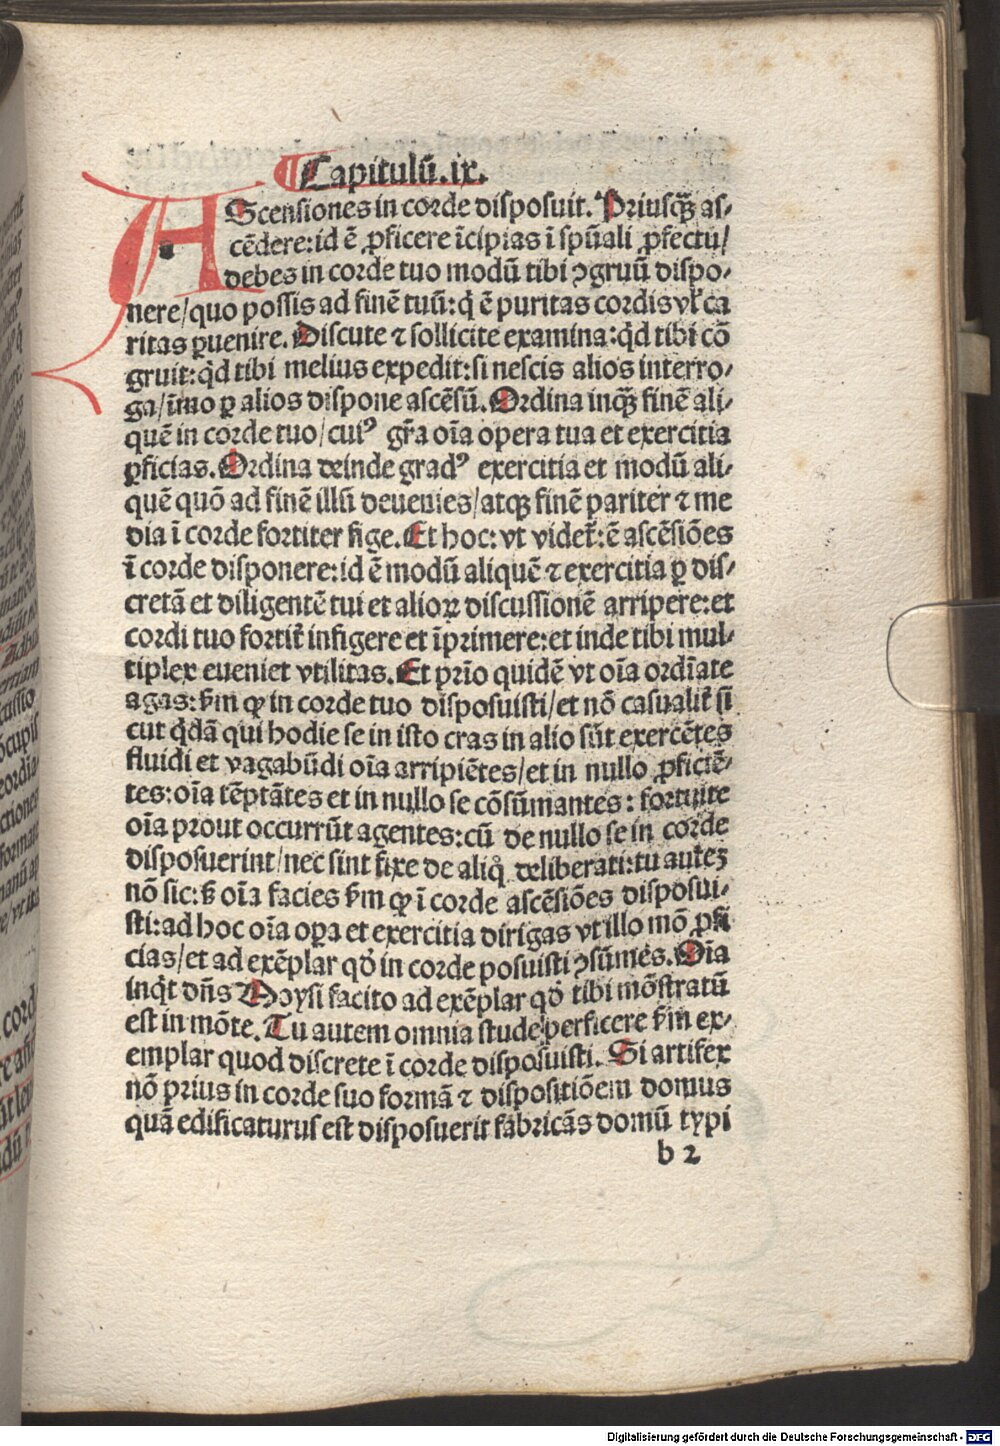 Capitulū.ix.
AScensiones in corde disposuit. Priusqꝫ as⸗
cēdere:id ē ꝓficere īcipias ī spūali ꝓfectu/
debes in corde tuo modū tibi ꝯgruū dispo⸗
nere/quo possis ad finē tuū:q̇ ē puritas cordis vl̓ ca
ritas ꝑuenire. Discute ⁊ sollicite examina:qd̓ tibi cō
gruit:qd̓ tibi melius expedit:si nescis alios interro⸗
ga/īmo ꝑ alios dispone ascēsū. Ordina inqꝫ finē ali⸗
quē in corde tuo/cuiꝰ gr̄a oīa opera tua et exercitia
ꝑficias. Ordina deinde gradꝰ exercitia et modū ali⸗
quē quō ad finē illū deuenies/atqꝫ finē pariter ⁊ me
dia ī corde fortiter fige. Et hoc: vt videt᷑: ē ascēsiōes
ī corde disponere:id ē modū aliquē ⁊ exercitia ꝑ dis⸗
cretā et diligentē tui et alioꝝ discussionē arripere:et
cordi tuo fortit᷑ infigere et īprimere:et inde tibi mul⸗
tiplex eueniet vtilitas. Et prīo quidē vt oīa ordīate
agas: ẜm qꝙ in corde tuo disposuisti/et nō casualit᷑ si
cut qd̓ā qui hodie se in isto cras in alio sūt exercētes
fluidi et vagabūdi oīa arripiētes/et in nullo ꝓficiē⸗
tes:oīa tēptātes et in nullo se cōsūmantes: fortuite
oīa prout occurrūt agentes:cū de nullo se in corde
disposuerint/nec sint fixe de aliq̇ deliberati:tu auteꝫ
nō sic:ẜ oīa facies ẜm qꝙ ī corde ascēsiōes disposui⸗
sti:ad hoc oīa oꝑa et exercitia dirigas vt illo mō ꝓfi
cias/et ad exēplar qd̓ in corde posuisti ꝯsūmes. Oīa
inqt̓ dn̄s Moysi facito ad exēplar qd̓ tibi mōstratū
est in mōte. Tu autem omnia stude perficere ẜm ex⸗
emplar quod discrete ī corde disposuisti. Si artifex
nō prius in corde suo formā ⁊ dispositiōem domus
quā edificaturus est disposuerit fabricās domū typi
b 2
Digitalisierung gefördert durch die Deutsche Forschungsgemeinschaft - DFG